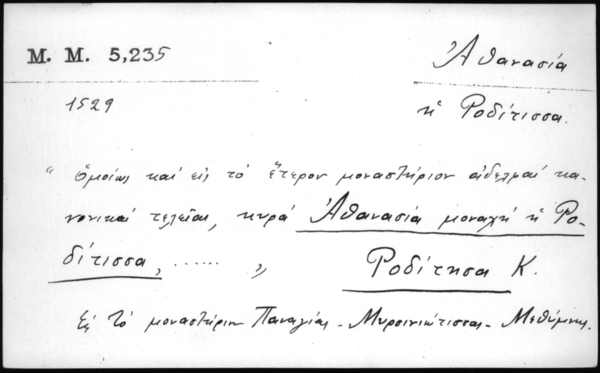 M. M. 5,235
Ἀθανασία
1529
ἡ Ροδίτισσα.
"Ὁμοίως καί εἰς τό ἕτερον μοναστήριον ἀδελφαί κα-
νονικαί τελεῖαι, κυρά Ἀθανασία μοναχή ἡ Ρο-
δίτισσα, ...... „ Ροδίτησα Κ.
Εἰς τό μοναστήριον Παναγίας - Μυρσινιώτισσας - Μεθύμνης.